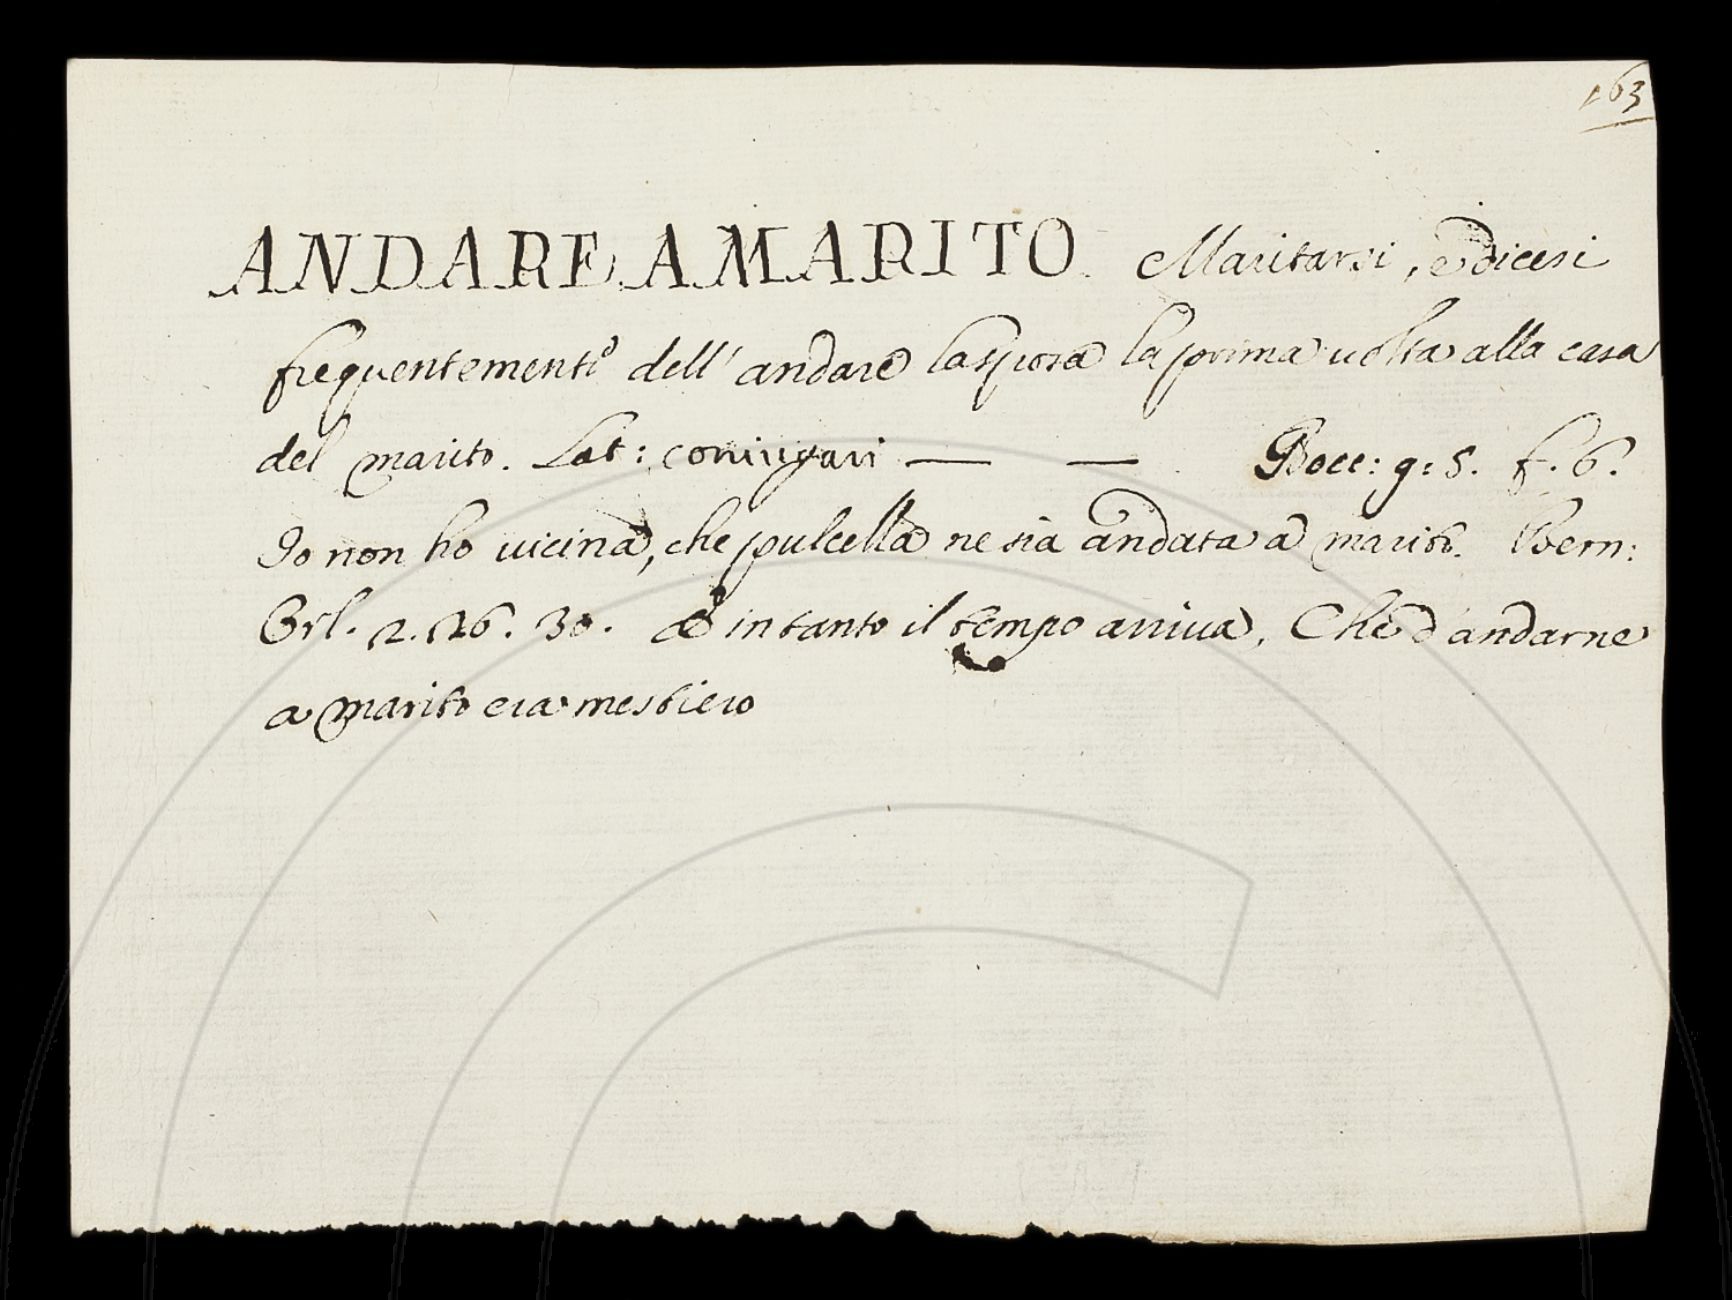 163
ANDARE A MARITO. Maritarsi, e dicesi
frequentemente dell' andare la sposa la prima uolta alla casa
del marito. Lat: coniugari — — Bocc: g: 8. f. 6.
Io non ho uicina, che pulcella ne sia andata a marito. Bern:
Orl. 2. 26. 30. E intanto il tempo arriua, Che d'andarne
a marito era mestiero